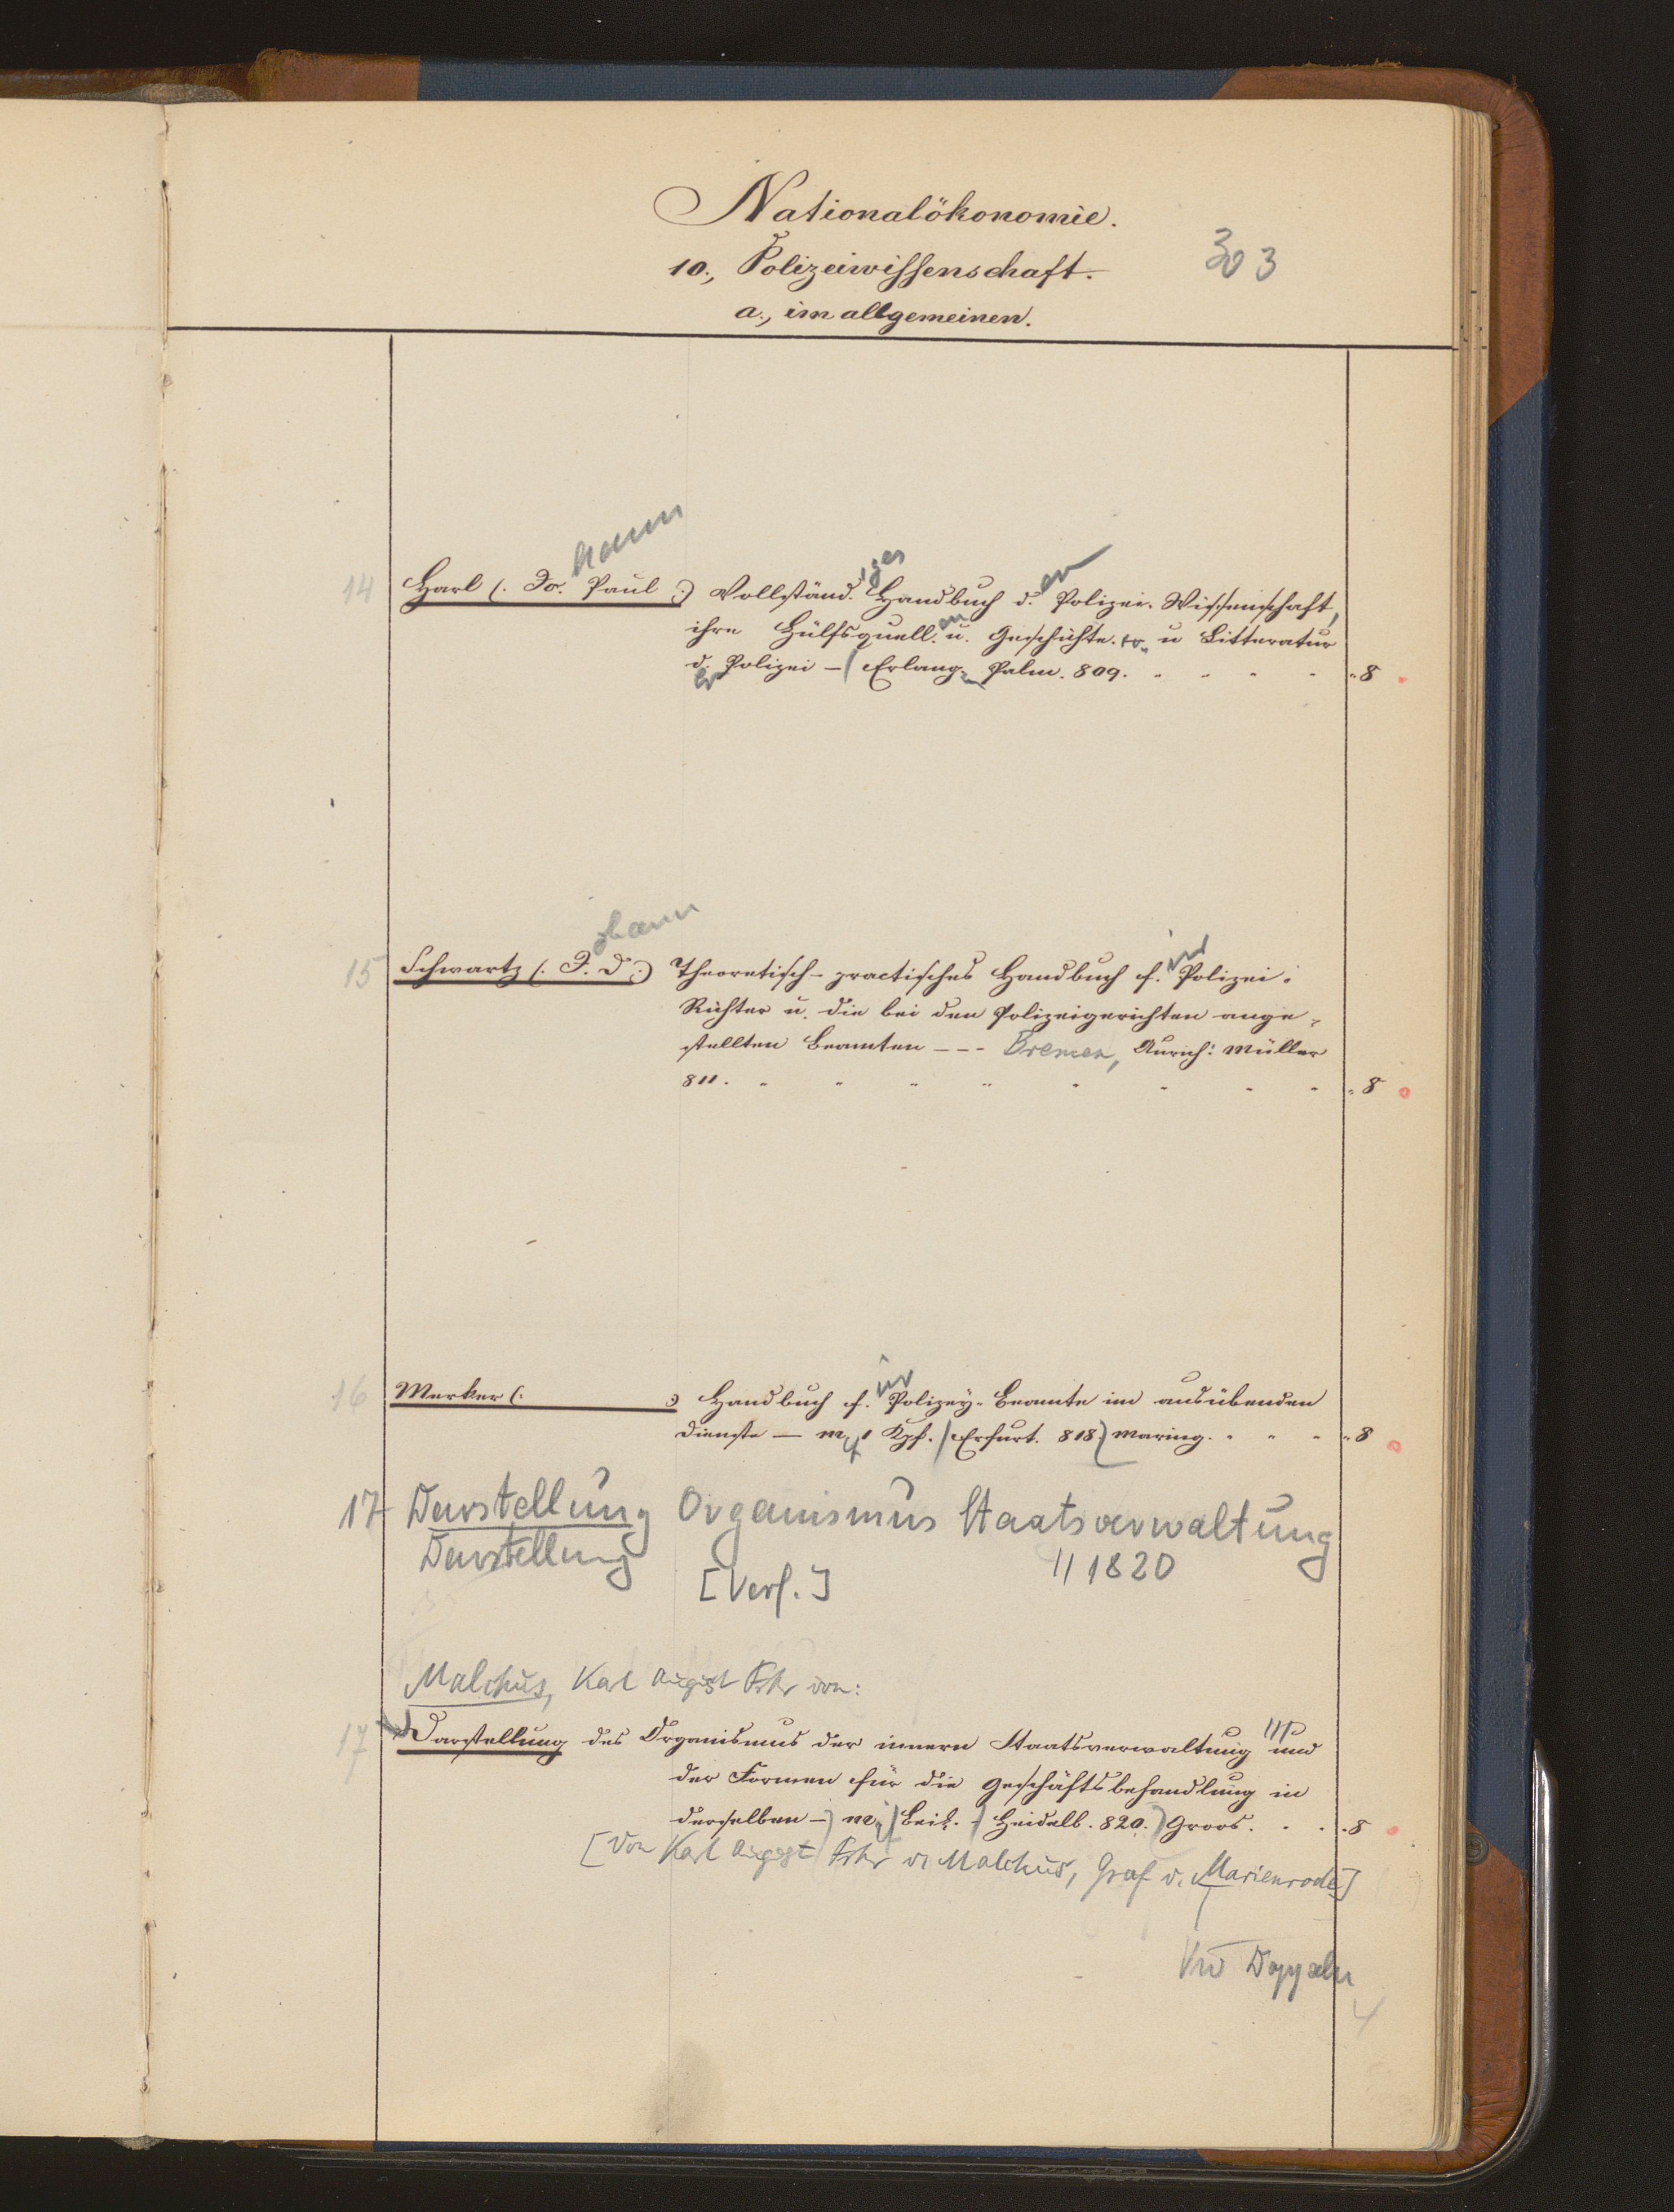 Nationalökonomie.
303
10., Polizeiwissenschaft.
a., im allgemeinen.
hann
14 Harl (. Jo. Paul .) Vollständ.iges Handbuch d.er Polizei-Wissenschaft,
ihre Hülfsquell.en u. Geschichte. u Litteratur
d.er Polizei — Erlang.en Palm. 809. 8
ohann
15 Schwartz (. J. D .) Theoretisch-practisches Handbuch f.ür Polizei-
Richter u. die bei den Polizeigerichten ange-
stellten Beamten --- Bremen, Aurich: Müller
811. 8
16 Merker (: :) Handbuch f.ür Polizey-Beamte im ausübenden
Dienste — m. 1 Kpf. Erfurt. 818. Maring. 8
17 Darstellung Organismus Staatsverwaltung
Darstellung // 1820
[Verf.]
Malchus, Karl August Frhr von:
17 Darstellung des Organismus der innern Staatsverwaltung und
der Formen für die Geschäftsbehandlung in
derselben — m. Beil. - Heidelb. 820. Groos. 8
[Von Karl August Frhr v. Malchus, Graf v. Marienrode]